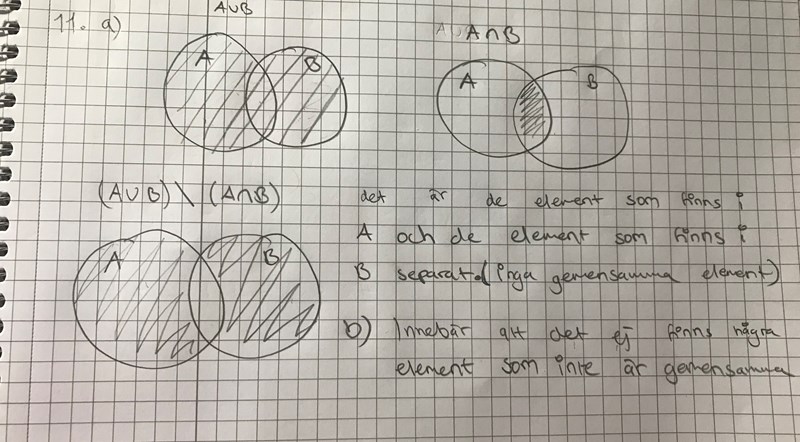 11. a)
A∪B
A B
A∩B
A B
(A∪B) \ (A∩B)
A B
det är de element som finns i
A och de element som finns i
B separat. (inga gemensamma element)
b) Innebär att det ej finns några
element som inte är gemensamma